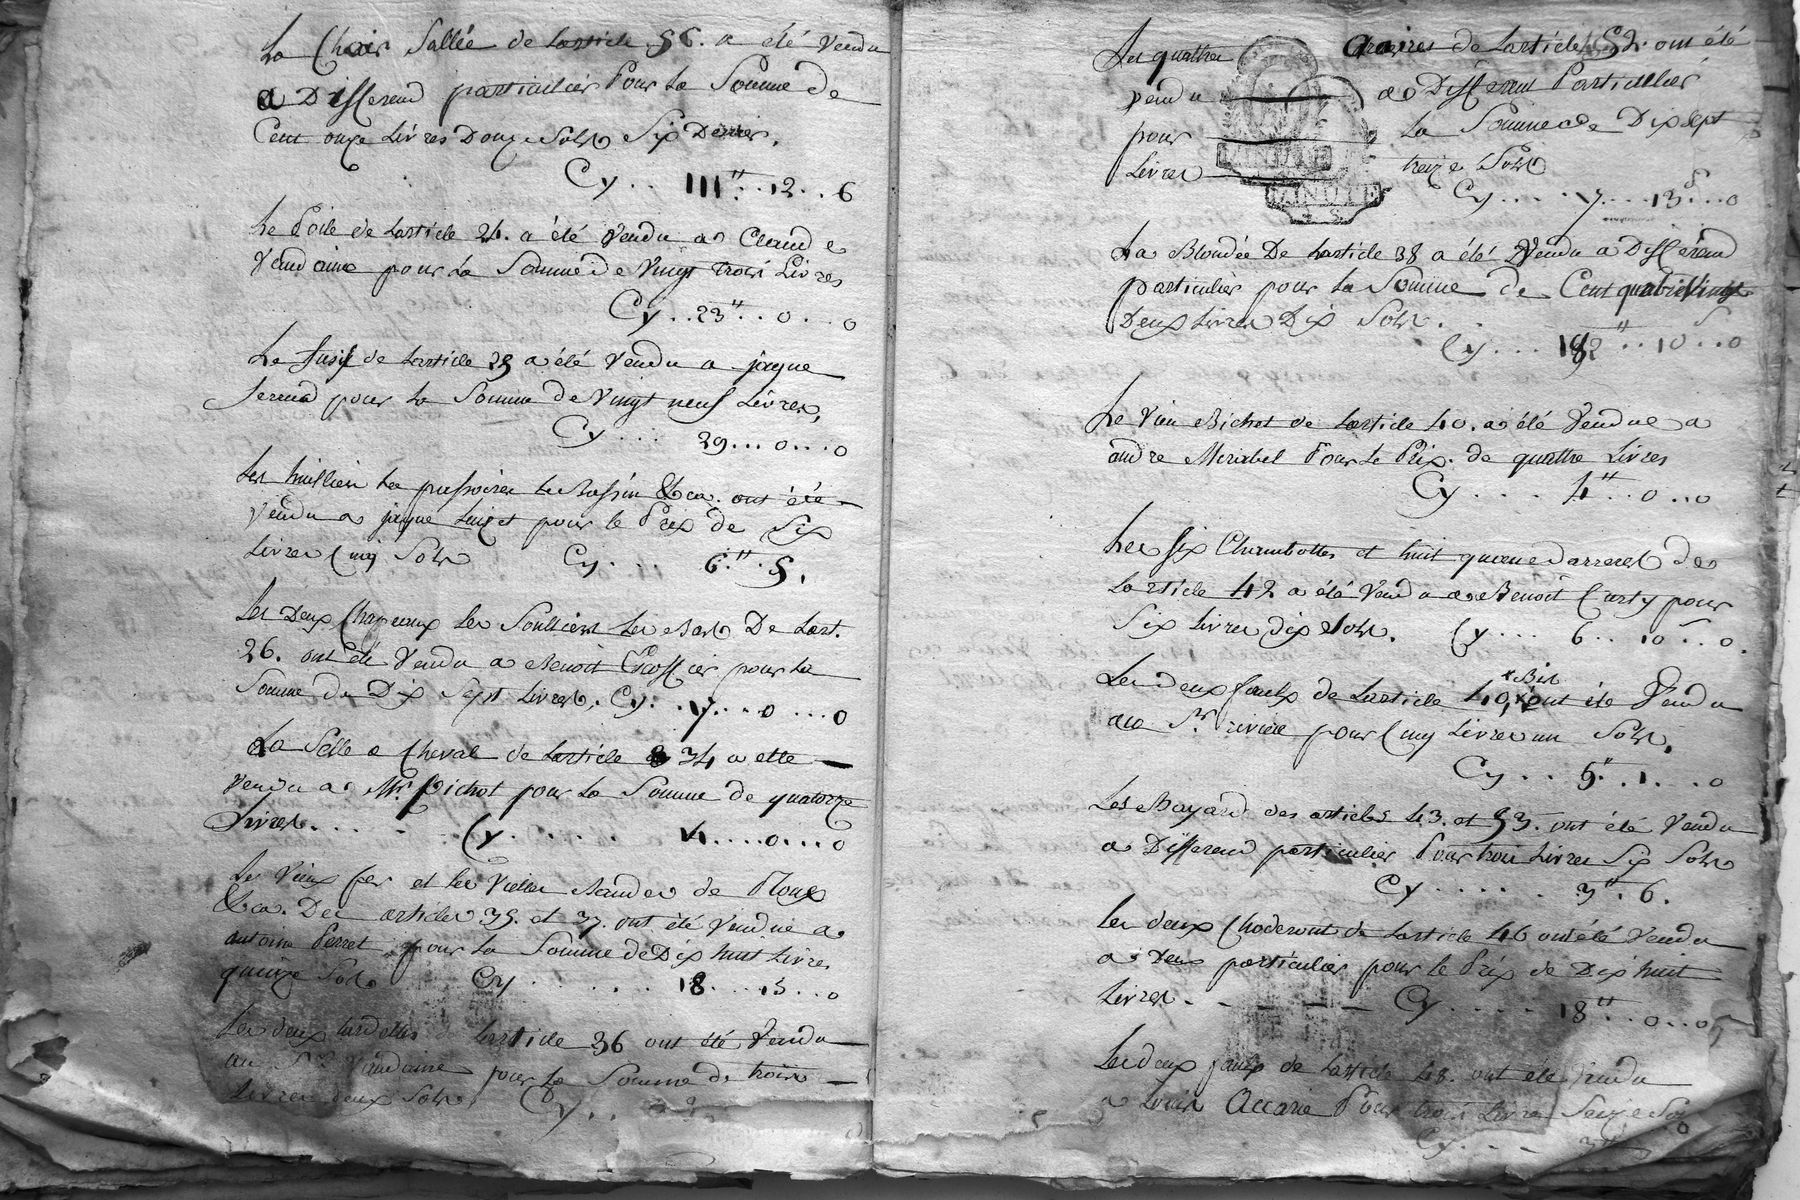 La Chair Sallée de Larticle 56. a été vendu
a Differend particulier Pour La Somme de
Cent onze Livres Douze Sols Six Denier.
Cy .. 111" .. 12 .. 6
Le Poile de Larticle 24. a été vendu a Claude
Vandaine pour La Somme de Vingt trois Livres
Cy .. 23" .. 0 ... 0
Le fusil de Larticle 25 a été vendu a jayue
pour La Somme de Vingt neuf Livres,
Cy ... 29 ... 0 ... 0
Les Le Bassin &ca. ont été
vendu a jayue pour le Prix de Six
Livres Cinq Sols Cy .... 6" . 5 .
Les Deux Chapeaux Les Soulliers Les Bas De Lart.
26. ont été Vendu a Benoit Ecossier pour La
Somme de Dix Sept Livres, Cy . . 17 ... 0 ... 0
La Selle a Cheval de Larticle 34 a ette
Vendu a Mr. Pichot pour La Somme de quatorze
Livres . . . . . Cy . . . . . 14 .... 0 ... 0
Le Vieux fer et Les Vielles Bandes de Roue
&ca. Des articles 35. et 37. ont été vendue a
antoine Perret pour La Somme de Dix huit Livres
quinze Sols Cy . . . . . 18 .... 15 ... 0
Les deux Larticle 36 ont été Vendu
au Sr. Vandaine pour La Somme de trois
Livres deux Sols Cy . .
Les quatre araires de Larticle 52. ont été
vendu a Different Particulier
pour La Somme de Dix Sept
Livres treize Sols
MINUTE
MINUTE
Cy .... 17 .... 13 ... 0
La Blondée De Larticle 38 a été Vendu a Differend
particulier pour La Somme de Cent quatre Vingt
Deux Livres Dix Sols .
Cy .... 182" .. 10 ... 0
Le Vieu Bichet de Larticle 40. a été Vendue a
andre Mirabel Pour Le Prix de quattre Livres
Cy .... 4" .. 0 ... 0
Les Six et huit de
Larticle 42 a été Vendu a Benoit Carty pour
Six Livres dix Sols. Cy .... 6 .. 10 .. 0.
Les deux faulx de Larticle 49, Bis ont été Vendu
au Sr. riviere pour Cinq Livres un Sols.
Cy .. 5" . 1 .... 0
Les Bayard des articles 43. et 53. ont été Vendu
a Differend particulier Pour trois Livres Six Sols
Cy . . . . . 3" . 6.
Les deux de Larticle 46 ont été Vendu
a Deux particulier pour Le Prix de Dix huit
Livres . - - - Cy ..... 18" .. 0 ... 0
Les deux faulx de Larticle 48. ont été vendu
a Louis Accarie Pour trois Livres Seize Sols
Cy . . . 3